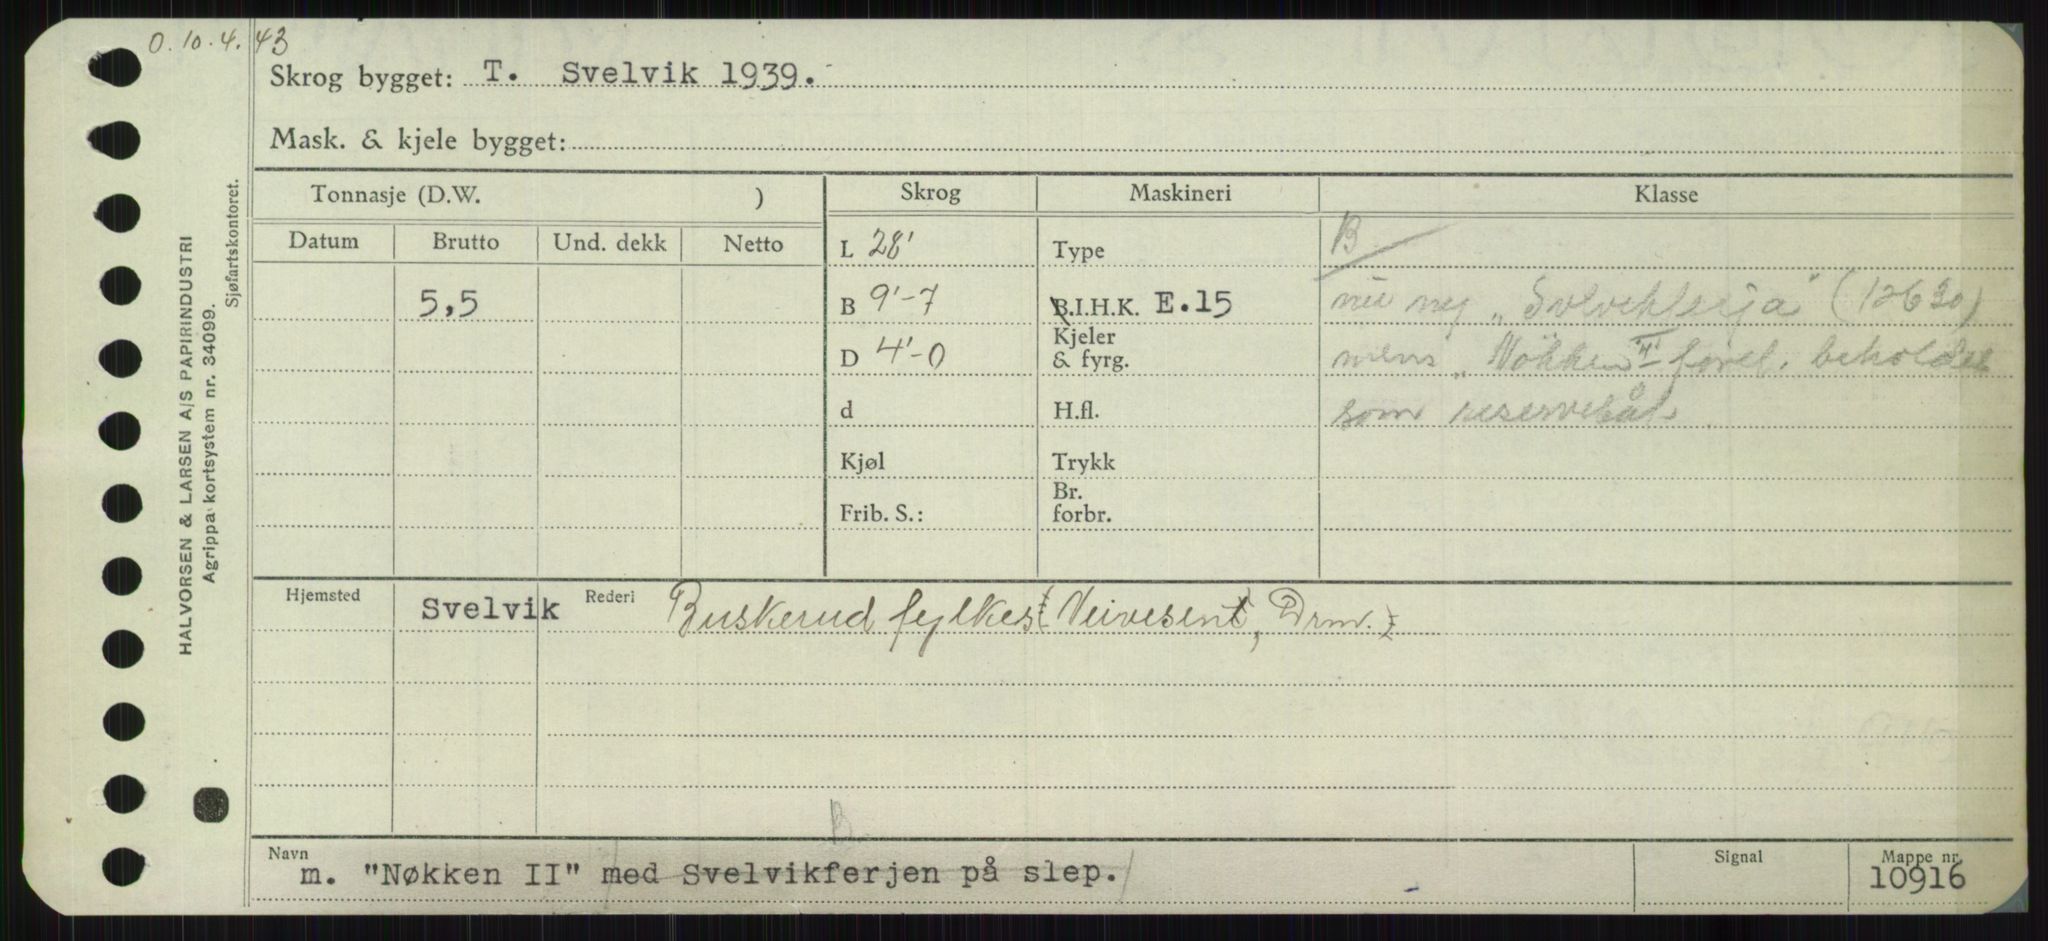 O. 10. 4. 43
Skrog bygget: T. Svelvik 1939.
Mask. & kjele bygget:
Tonnasje (D.W. )
Skrog
Maskineri
Klasse
Datum Brutto Und. dekk Netto
L 28'
Type
B
5,5
B 9'-7
B.I.H.K. E.15
ny "Svelvikferja" (12630)
D 4'-0
Kjeler
& fyrg.
mens "Nøkken II" forel. beholdes
d
H.fl.
som reservebåt.
Kjøl
Trykk
Frib. S.:
Br.
forbr.
Hjemsted Svelvik Rederi Buskerud fylkes (Veivesent, Drm.)
B
Navn
m. "Nøkken II" med Svelvikferjen på slep.
Signal
Mappe nr.
10916
HALVORSEN & LARSEN A/S PAPIRINDUSTRI
Agrippa kortsystem nr. 34099.
Sjøfartskontoret.